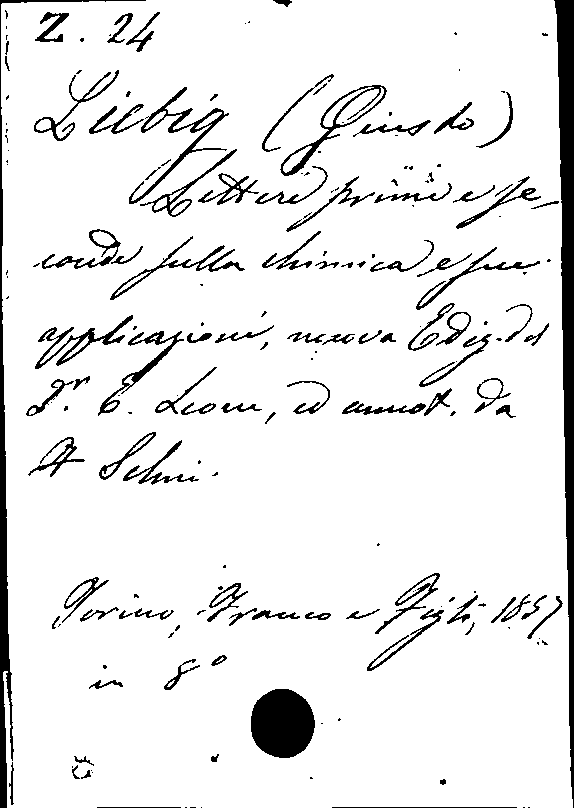 Z. 24
Liebig (Giusto)
Lettere prime e se-
conde sulla chimica e sue
applicazioni, nuova Ediz. del
Dr. E. Leone, ed annot. da
F Selmi.
Torino, Franco e Figli, 1857
in 8°